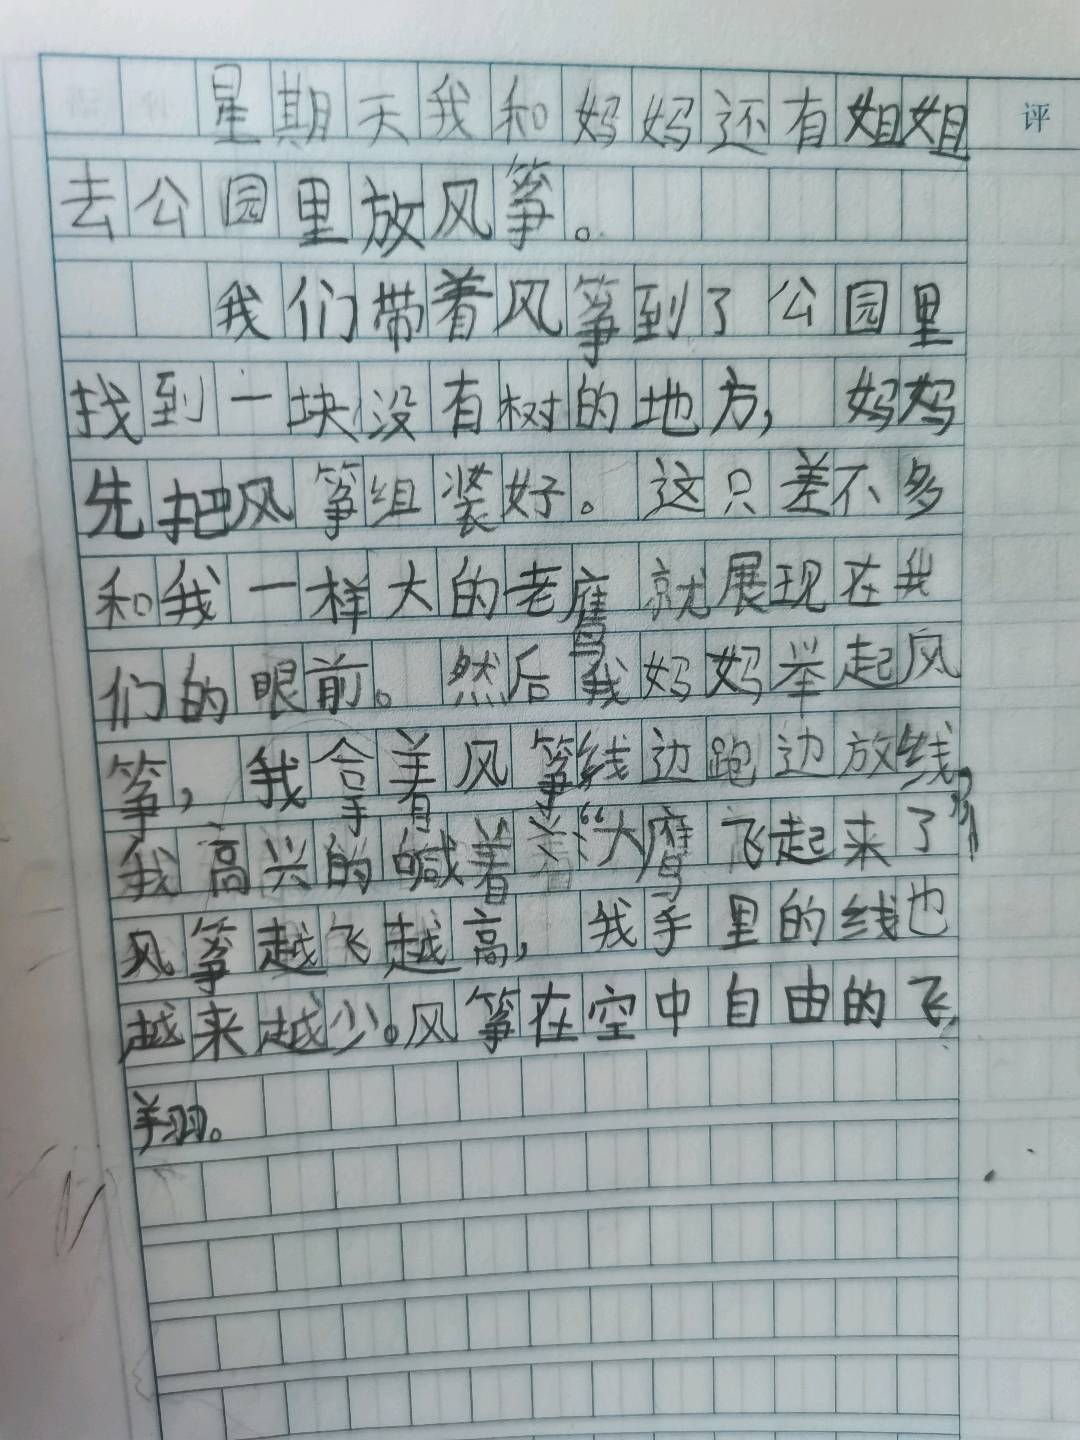 星期天我和妈妈还有姐姐
评
去公园里放风筝。
我们带着风筝到了公园里
找到一块没有树的地方,妈妈
先把风筝组装好。这只差不多
和我一样大的老鹰就展现在我
们的眼前。然后我妈妈举起风
筝,我拿着风筝线边跑边放线,
我高兴的喊着:“大鹰飞起来了”
风筝越飞越高,我手里的线也
越来越少。风筝在空中自由的飞
翔。